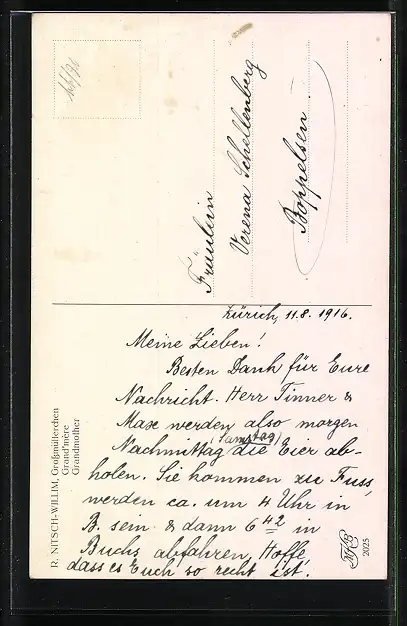 Fräulein
Verena Schellenberg
Boppelsen
Zürich, 11.8. 1916.
Meine Lieben!
Besten Dank für Eure
Nachricht. Herr Tinner &
Max werden also morgen
(Samstag)
Nachmittag die Eier ab-
holen. Sie kommen zu Fuss,
werden ca. um 4 Uhr in
B. sein & dann 6 42 in
Buchs abfahren. Hoffe,
dass es Euch so recht ist.
R. NITSCH-WILLIM, Großmütterchen
Grand'mère
Grandmother
2025